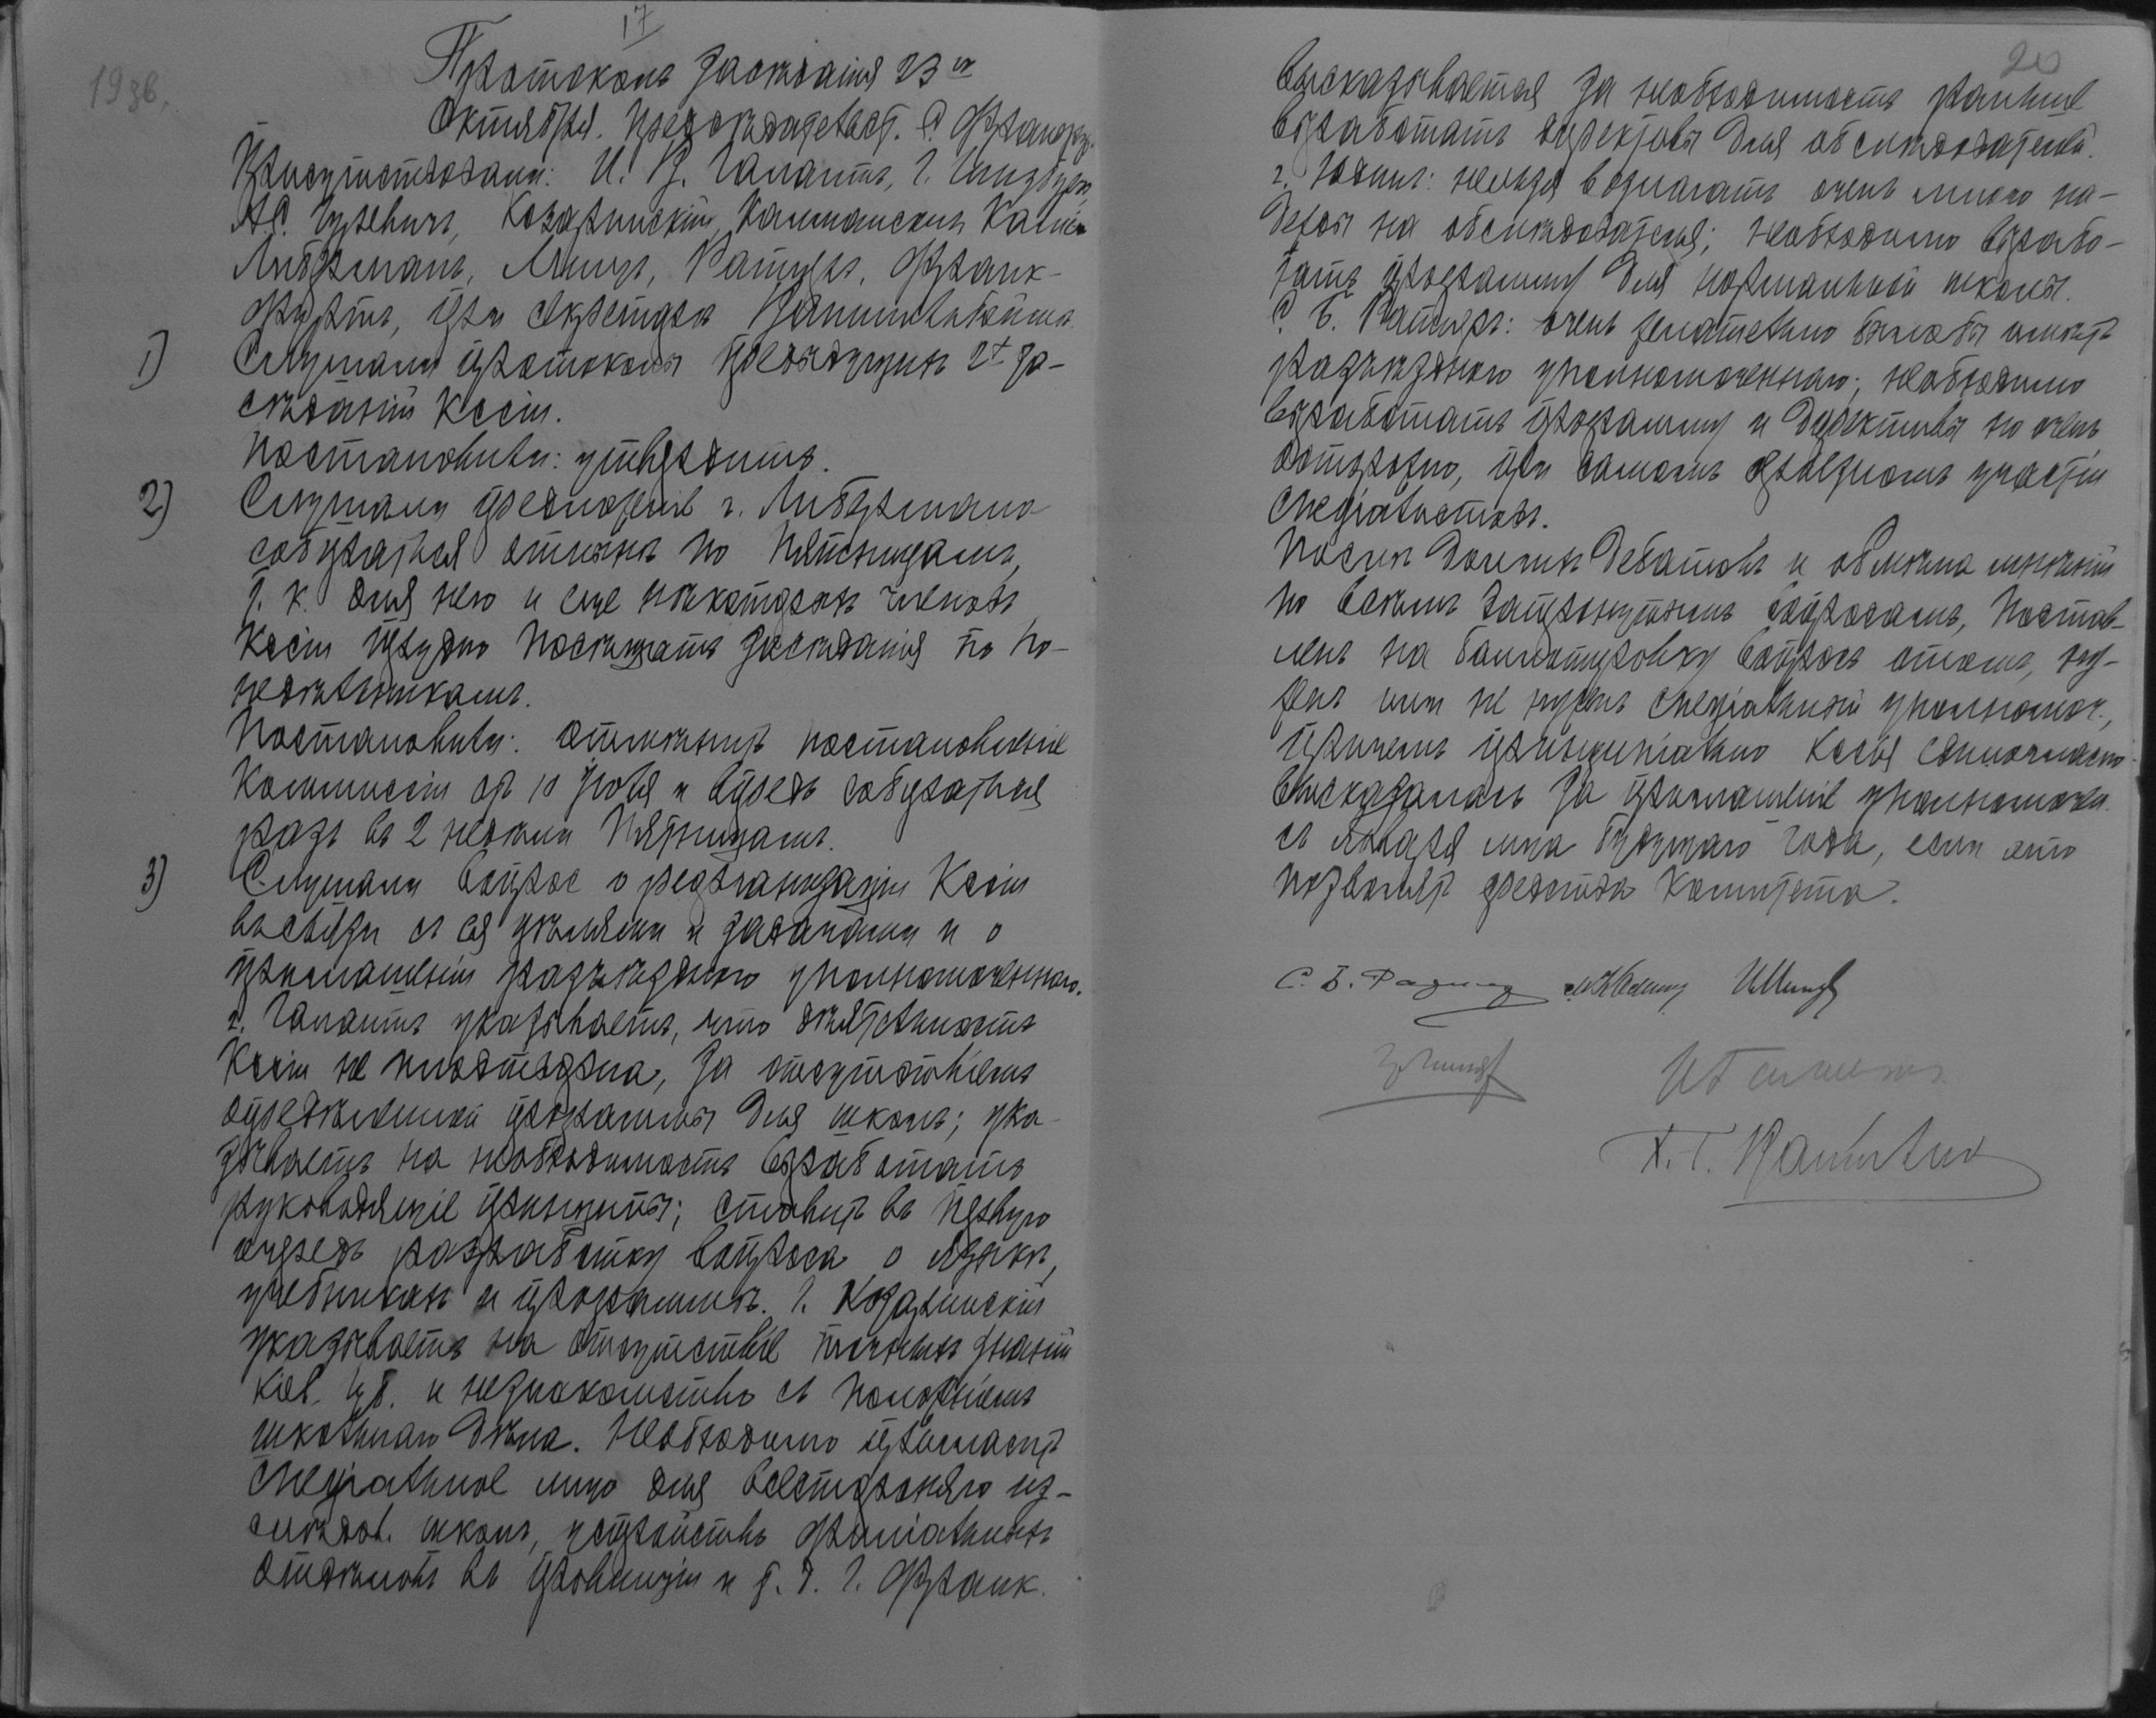 17
193б.
Протоколъ Засѣданія 23го
Октября. Предсѣдательст. С. Франкф.
Присутствовали: И. В. Галантъ, Г. Гинзбургъ,
А.С. Гуревичъ, Козаринскій, Каплинскій
Либерманъ, Минцъ, Ратнеръ, Франк-
фуртъ, при секретарѣ
1) Слушали протоколы предыдущихъ 2х за-
сѣданій Ксіи.
Постановили: утвердить.
2) Слушали предложеніе г. Либермана
собираться отнынѣ по Пятницамъ,
т. к. для него и еще нѣкоторыхъ членовъ
Ксіи трудно посѣщать засѣданія по по-
недѣльникамъ.
Постановили: отмѣнить постановленіе
Коммиссіи отъ 10 Іюля и впредь собираться
разъ въ 2 недѣли Пятницамъ.
3) Слушали вопрос о реорганизаціи Ксіи
въ связи съ ея цѣлями и задачами и о
приглашеніи разъѣзднаго уполномоченнаго.
г. Галантъ указываетъ, что дѣятельность
Ксіи не плодотворна, за отсутствіемъ
опредѣленной программы для школъ; ука-
зываетъ на необходимость выработать
руководящіе принципы; ставитъ въ первую
очередь разработку вопроса о языкѣ,
учебникахъ и программѣ. Г. Козаринскій
указываетъ на отсутствіе точныхъ знаній
Кіев. губ. и незнакомство съ положеніемъ
школьнаго дѣла. Необходимо пригласить
спеціальное лицо для всесторонняго из-
слѣдов. школъ, устройствъ филіальныхъ
отдѣловъ въ провинціи и т. д. Г. Франк.
20
высказывается за необходимость раньше
выработать директивы для обслѣдователей.
г. Юдинъ: нельзя возлагать очень много на-
деждъ на обслѣдователя; необходимо вырабо-
тать программу для нормальной школы.
С. Б. Ратнеръ: очень желательно было бы имѣть
разъѣзднаго уполномоченнаго; необходимо
выработать программу и директивы но очень
осторожно, при самомъ серьезномъ участіи
спеціалистовъ.
Послѣ долгихъ дебатовъ и обмѣна мнѣній
по всѣмъ затронутымъ вопросамъ, постав-
ленъ на баллотировку вопросъ о томъ, ну-
женъ или не нуженъ спеціальный уполномоч.,
причемъ принципіально Ксія единогласно
высказалась за приглашеніе уполномочен.
съ Января м-ца будущаго года, если это
позволятъ средства Комитета.
С. Б. Ратнеръ И. Минцъ